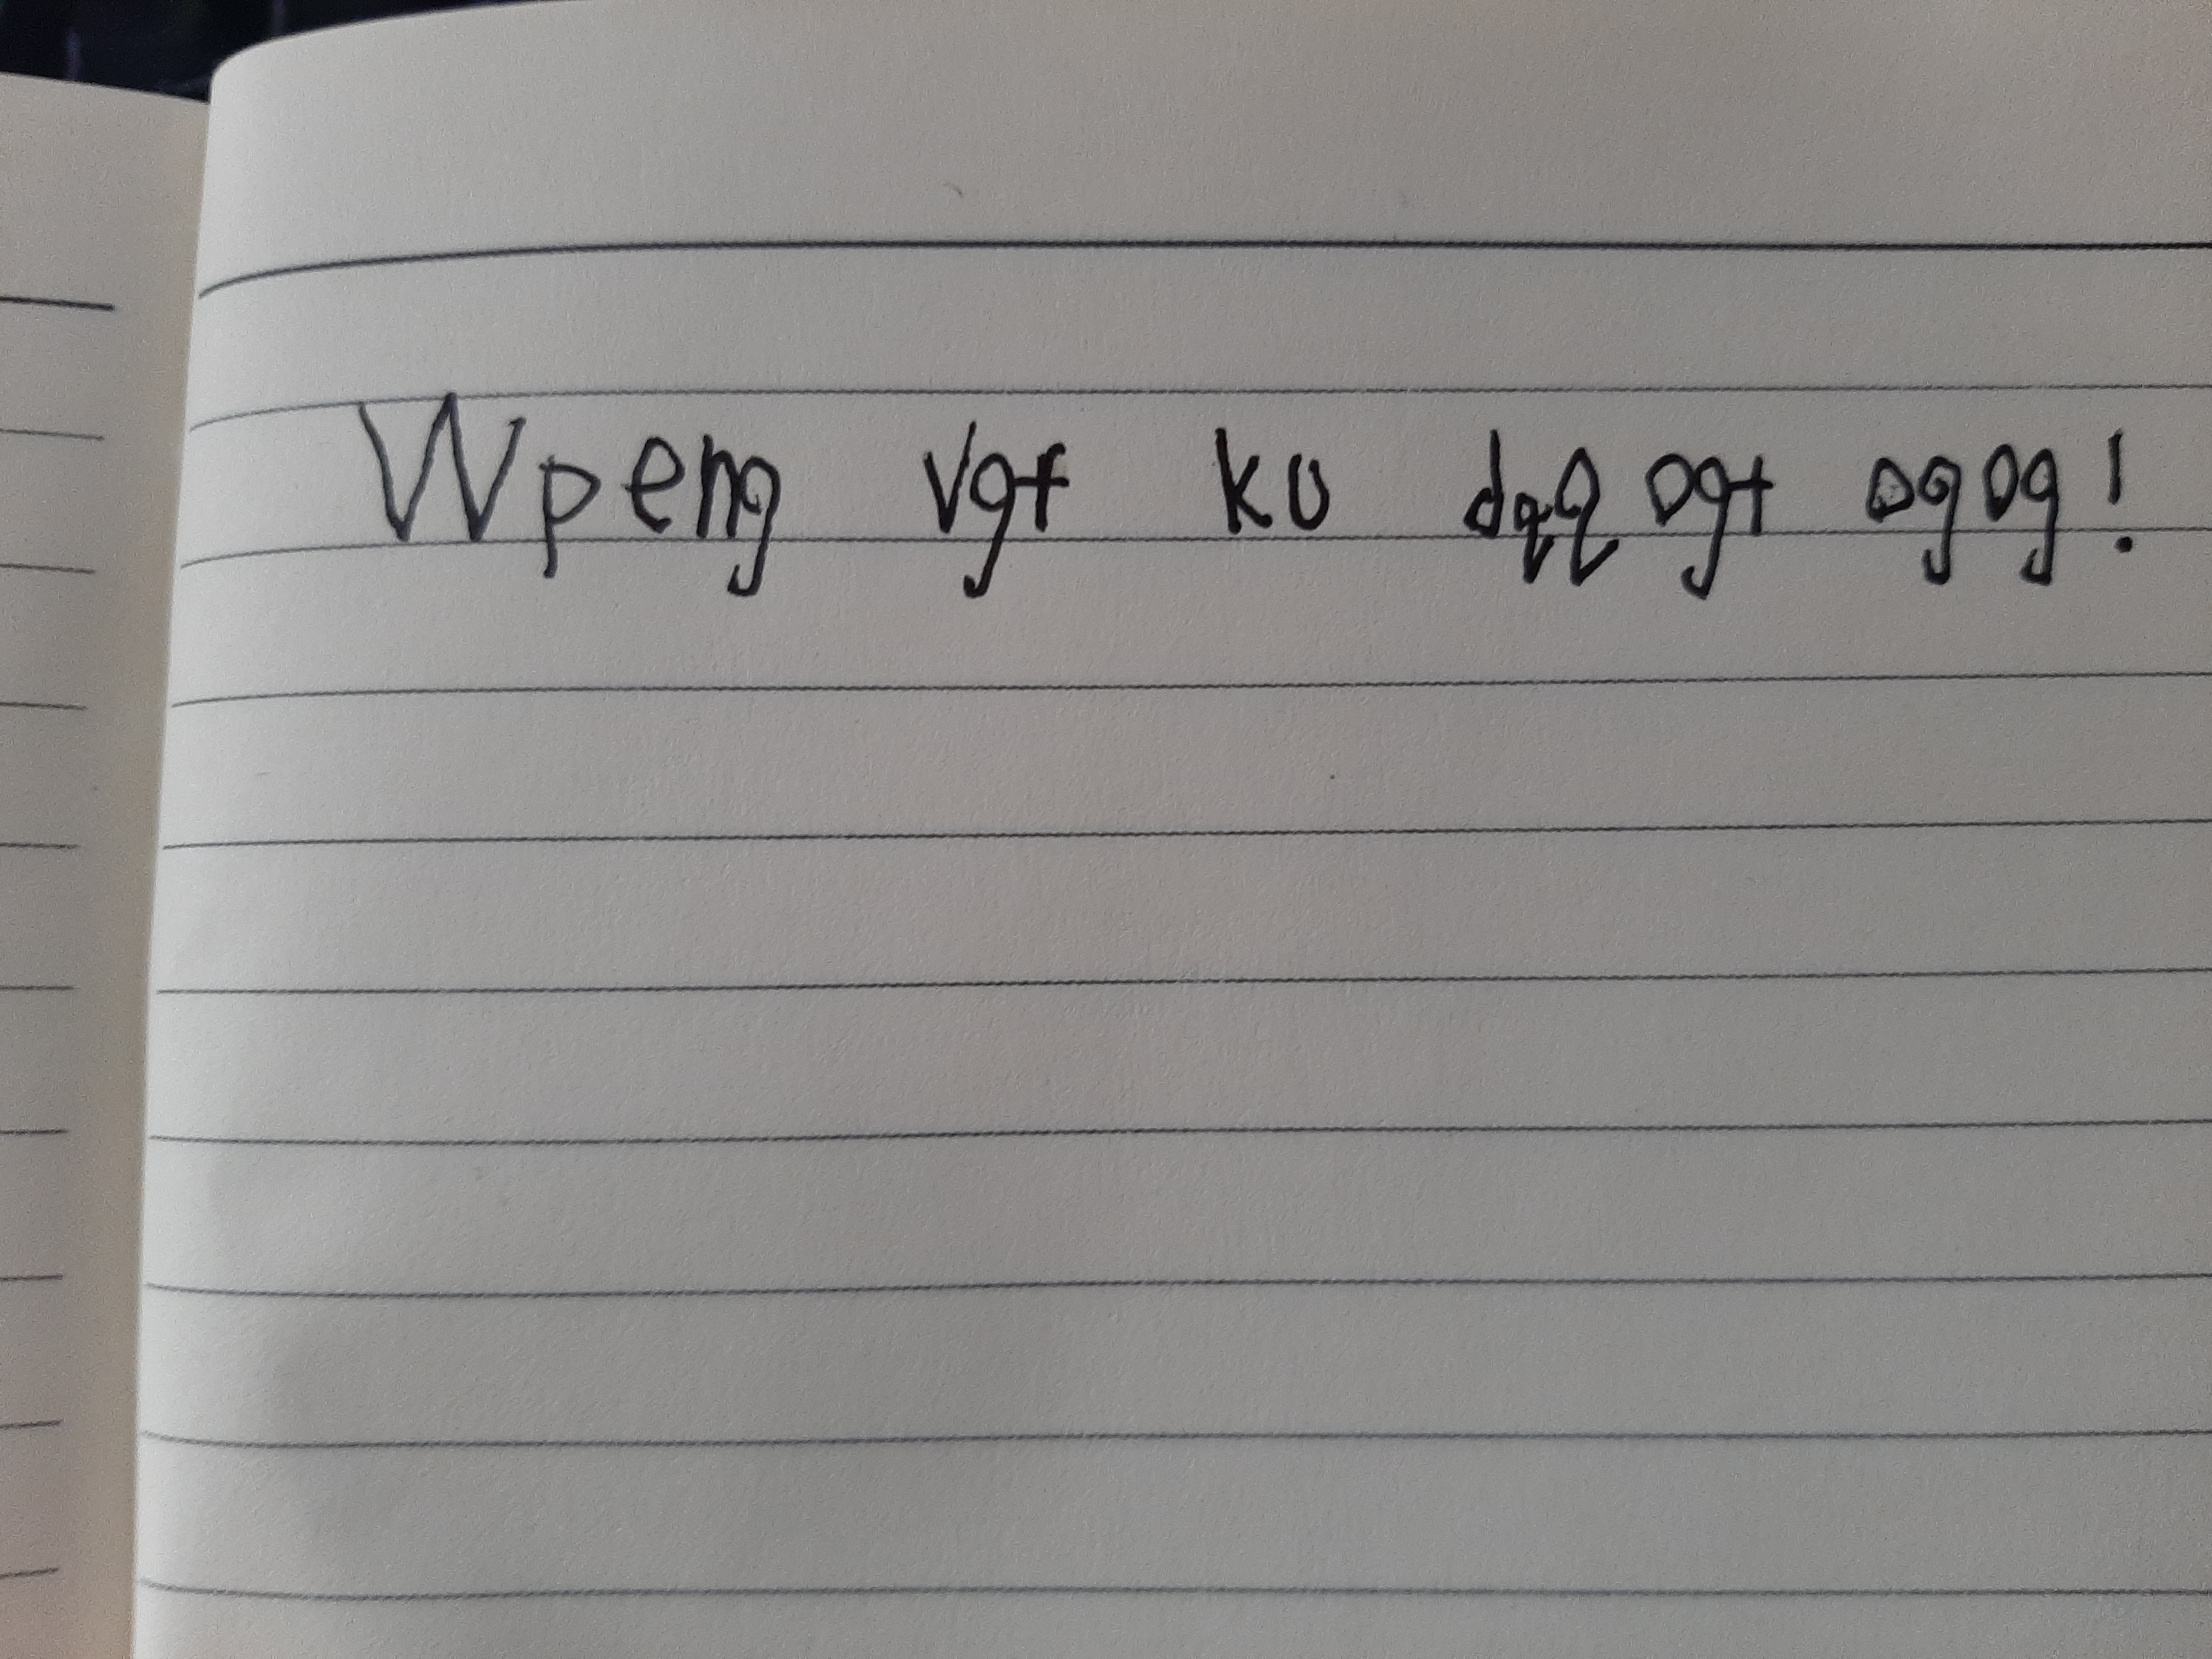 Wpeng vgt ku dqq ogt ogog!